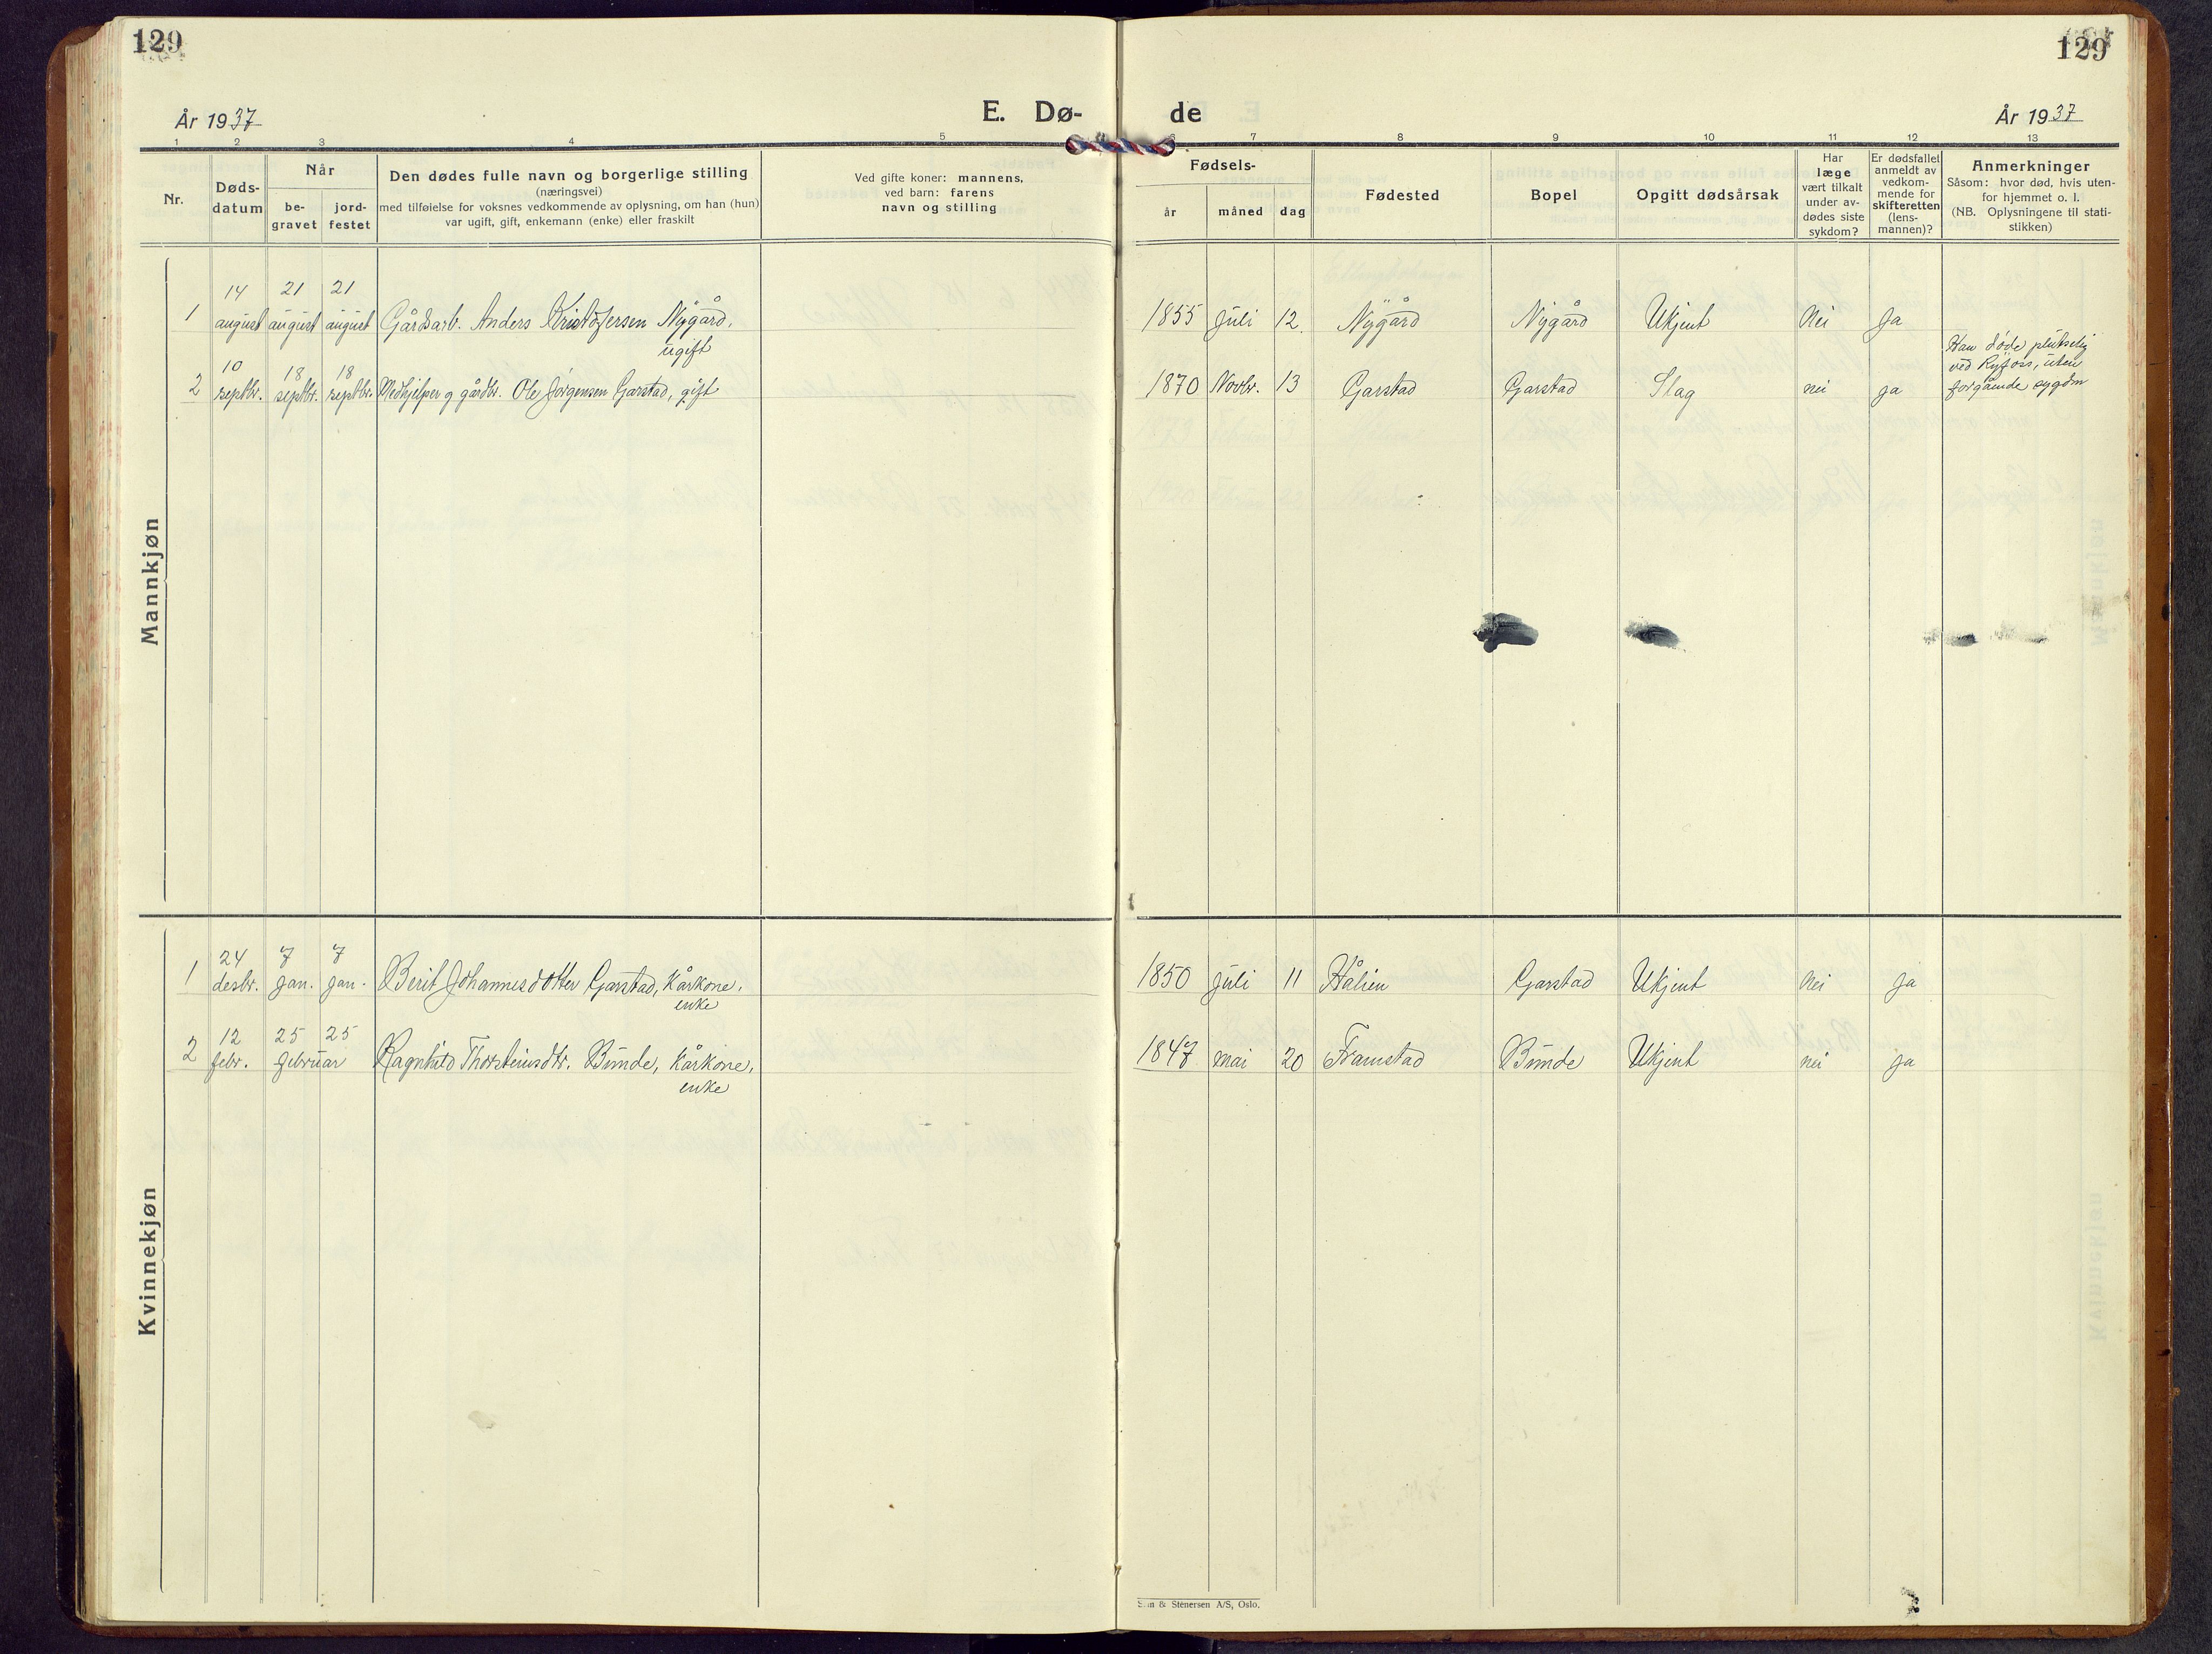 129
129
År 1937
E. Dø-
de
År 1937
1 2 3 4 5 6 7 8 9 10 11 12 13
Nr.
Døds-
datum
Når
be-
gravet
jord-
festet
Den dødes fulle navn og borgerlige stilling
(næringsvei)
med tilføielse for voksnes vedkommende av oplysning, om han (hun)
var ugift, gift, enkemann (enke) eller fraskilt
Ved gifte koner: mannens,
ved barn: farens
navn og stilling
Fødsels-
år
måned
dag
Fødested
Bopel
Opgitt dødsårsak
Har
læge
vært tilkalt
under av-
dødes siste
sykdom?
Er dødsfallet
anmeldt av
vedkom-
mende for
skifteretten
(lens-
mannen)?
Anmerkninger
Såsom: hvor død, hvis uten-
for hjemmet o. l.
(NB. Oplysningene til stati-
stikken)
Mannkjøn
14 21 21
1 august august august Gårdsarb. Anders Kristofersen Nygård, 1855 Juli 12. Nygård Nygård Ukjent Nei Ja
ugift
Han døde plutselig
ved Ryfoss, uten
forgående sygdm
10 18 18
2 septbr. septbr. septbr. Medhjelper g gårdbr. Ole Jørgensen Garstad, gift 1870 Novbr. 13 Garstad Garstad Slag nei ja
Kvinnekjøn
24 7 7
1 desbr. jan. jan. Berit Johannesdotter Garstad, Kårkone, 1850 juli 11 Hålien Garstad Ukjent Nei ja
enke
12 25 25
2 febr. februar Ragnhild Thorsteinsdtr. Bunde, Kårkone, 1847 mai 20 Framstad Bunde Ukjent nei ja
enke
& Stenersen A/S, Oslo.